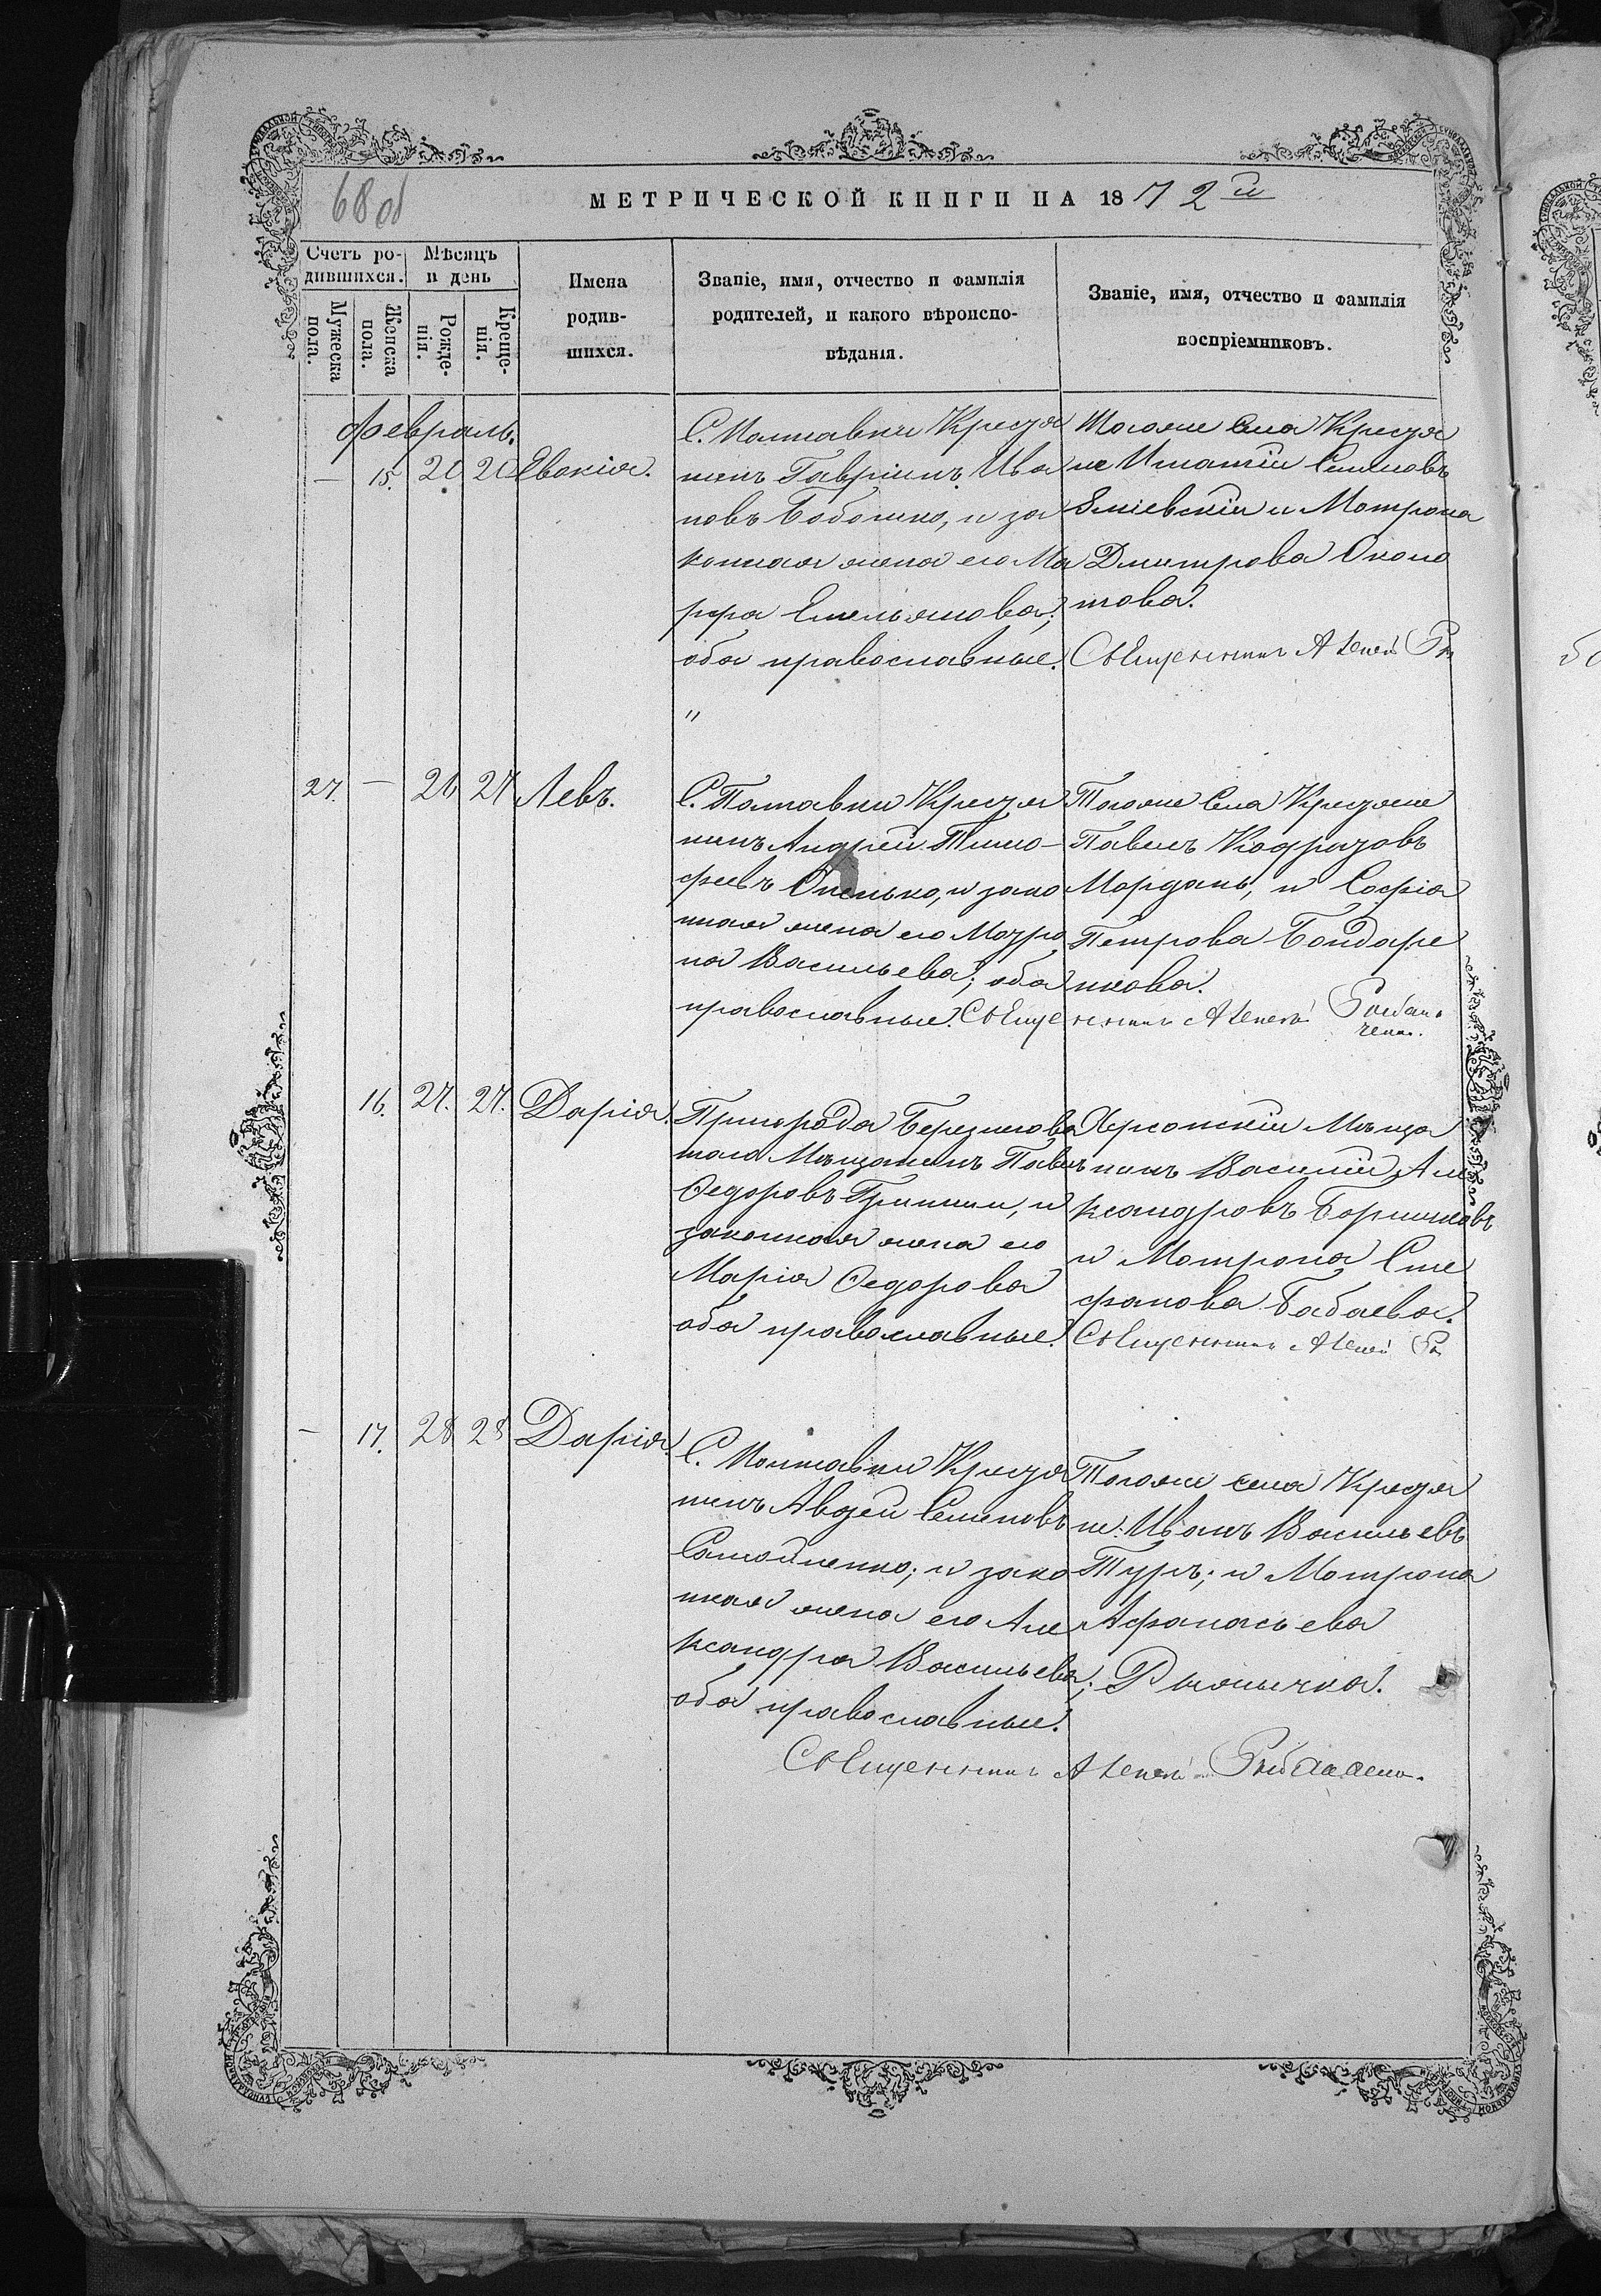 68 об
МЕТРИЧЕСКОЙ КНИГИ НА 1872й
Счетъ ро-
дившихся.
Мужеска
пола.
Женска
пола.
Мѣсяцъ
и день
Рожде-
нія.
Креще-
нія.
Имена
родив-
шихся.
Званіе, имя, отчество и фамилія
родителей, и какого вѣроиспо-
вѣданія.
Званіе, имя, отчество и фамилія
воспріемниковъ.
Февраль.
— 15. 20 20 Евдокія.
С. Полтавки Крестья
нинъ Гавріилъ Ива
новъ Бобошко, и за
конная жена его Ма
рфа Емельянова;
оба православные.
"
Тогоже села Крестья
не Игнатій Семеновъ
Зміевскій и Матрона
Дмитрова
това.
Священникъ Алексѣй
27. — 26 27 Левъ.
С. Полтавки Крестья
нинъ Андрей Тимо-
феевъ Опенько, и зако
нная жена его Матро
на Васильева; оба
православные.
Тогоже Села Крестьяне
Павелъ
Мордань, и Софія
Петрова Бондаре
нкова.
Священникъ Алексѣй
16. 27. 27. Дарія.
Пригорода Березнегова
таго Мѣщанинъ Павелъ
Федоровъ и
законная жена его
Марія Федорова
оба православные.
Херсонскій Мѣща
нинъ Василій Але
ксандровъ
и Матрона Сте
фанова Бабаева.
Священникъ Алексѣй
— 17. 28 28 Дарія.
С. Полтавки Крестья
нинъ Авдей Семеновъ
Самойленко; и зако
нная жена его Але
ксандра Васильева;
оба православные.
Тогоже села Крестья
не: Иванъ Васильевъ
Туръ; и Матрона
Афанасьева
Священникъ Алексѣй